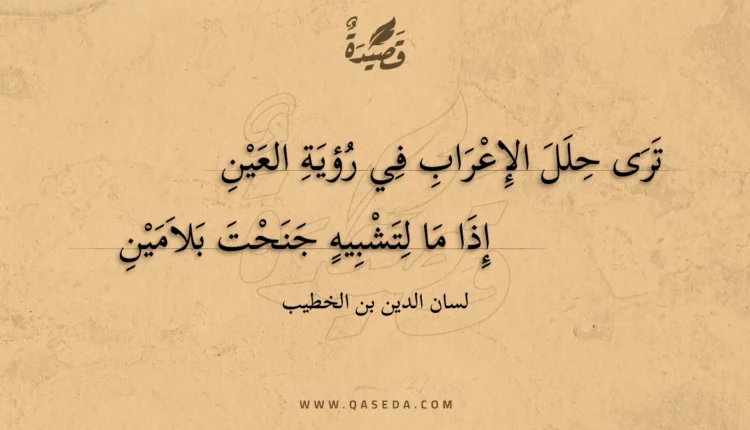 قَصِيْدَةٌ
تَرَى حِلَلَ الإِعْرَابِ فِي رُؤيَةِ العَيْنِ
إِذَا مَا لِتَشْبِيهٍ جَنَحْتَ بَلاَمَيْنِ
لسان الدين بن الخطيب
WWW.QASEDA.COM